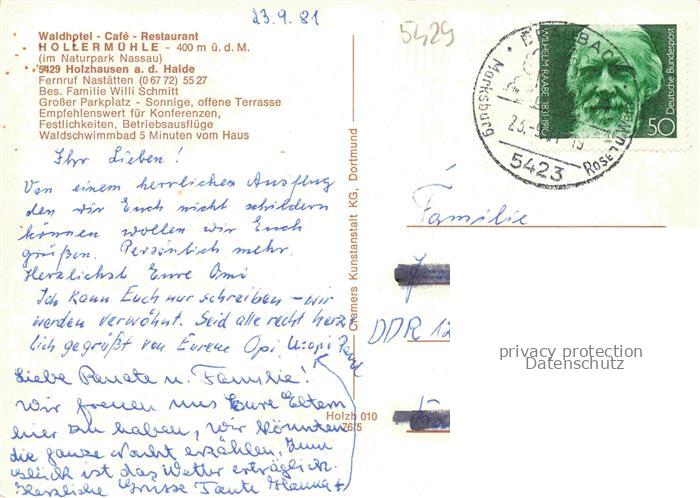 23.9.81
5429
Waldhotel - Café - Restaurant
HOLLERMÜHLE - 400 m ü. d. M.
(im Naturpark Nassau)
5429 Holzhausen a. d. Haide
Fernruf Nastätten (0 67 72) 55 27
Bes. Familie Willi Schmitt
Großer Parkplatz - Sonnige, offene Terrasse
Empfehlenswert für Konferenzen,
Festlichkeiten, Betriebsausflüge
Waldschwimmbad 5 Minuten vom Haus
Ihr Lieben!
Von einem herrlichen Ausflug
den wir Euch nicht schildern
können wollen wir Euch
grüßen. Persönlich mehr.
Herzlichst Eure Omi
Ich kann Euch nur schreiben – wir
werden verwöhnt. Seid alle recht herz-
lich gegrüßt von Eurem Opi
Liebe Renate u. Familie!
Wir freuen uns Eure Eltern
hier zu haben, wir könnten
die ganze Nacht erzählen. Zum
Glück ist das Wetter erträglich.
Herzliche Grüsse Tante Hanna +
Cramers Kunstanstalt KG, Dortmund
Holzh 010
76/5
WILHELM RAABE 1831-1910
Deutsche Bundespost
50
Marksburg
5423
Familie
DDR 12
privacy protection
Datenschutz